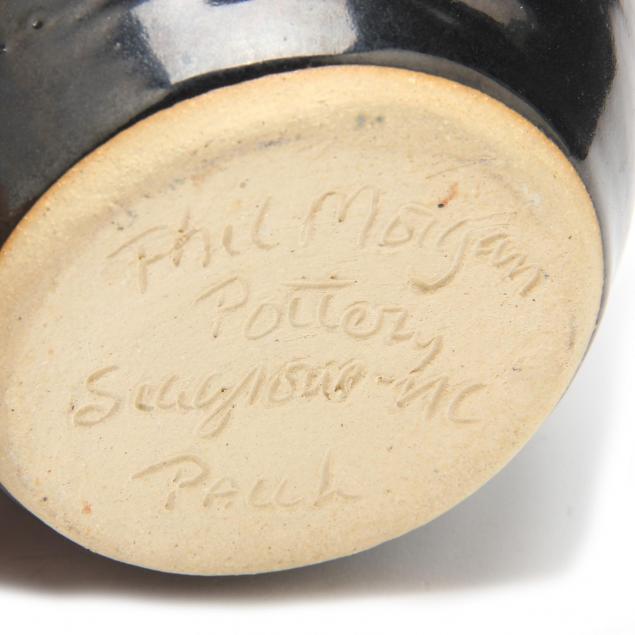 Phil Morgan
Pottery
Seagrove-NC